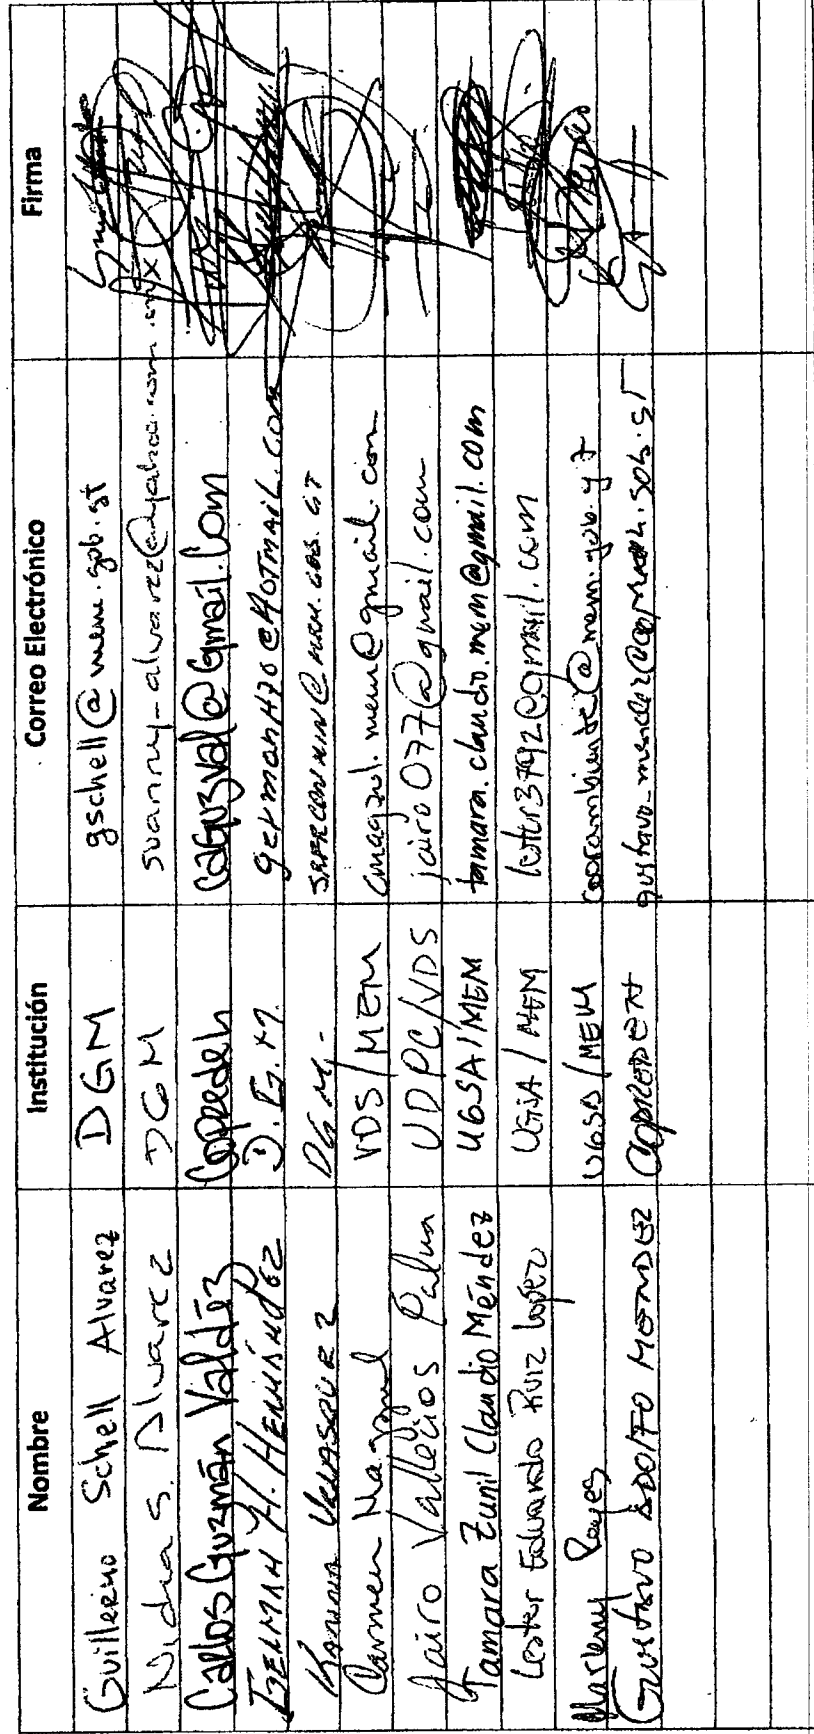 Nombre Institución Correo Electrónico Firma
Guillermo Schell Alvarez DGM gschell@mem.gob.gt
Nidia S. Alvarez DGM
Carlos Guzmán Valdéz Copredeh caguzval@gmail.com
GERMAN H. HERNÁNDEZ D.G.M. german H70@HOTMAIL.COM
VELASQUEZ DGM.-
Carmen Magzul VDS/MEM cmagzul.mem@gmail.com
Jairo Vallecios Palma UDPC/VDS jairo077@gmail.com
Tamara Zunil Claudio Méndez UGSA/MEM tamara.claudio.mem@gmail.com
Lester Eduardo Ruiz López UGSA/MEM lester3792@gmail.com
Marleny Reyes UGSA/MEM coorambiente@mem.gob.gt
Gustavo ADOLFO MENDEZ COPREDEH